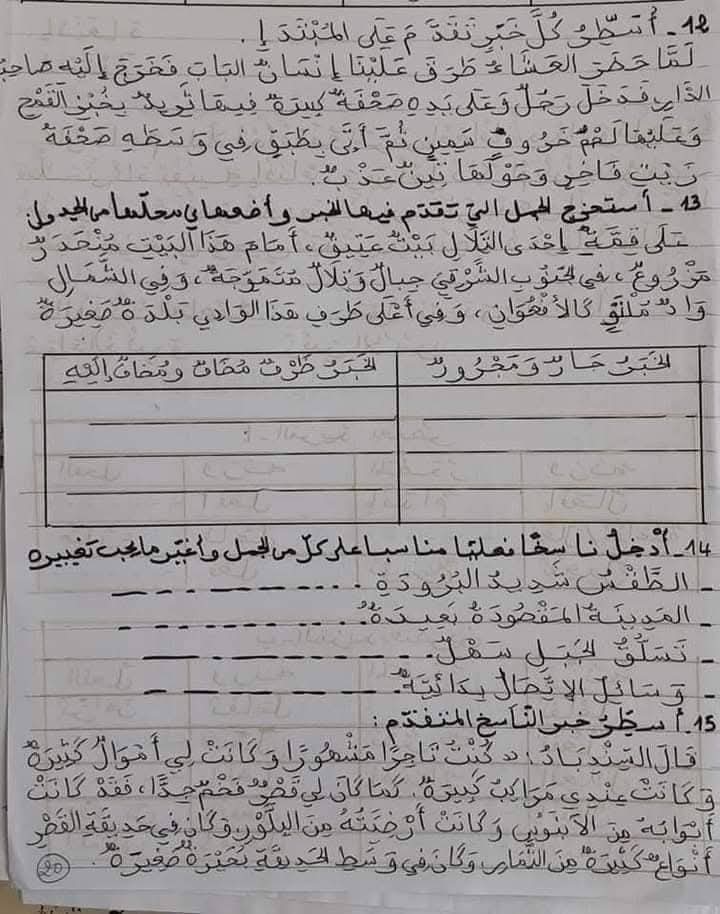 12- أُسَطِّرُ كُلَّ خَبَرٍ تَقَدَّمَ عَلَى المُبْتَدَإِ.
لَمَّا حَضَرَ العَشَاءُ طَرَقَ عَلَيْنَا إِنْسَانٌ البَابَ فَخَرَجَ إِلَيْهِ صَاحِبُ
الدَّارِ فَدَخَلَ رَجُلٌ وَعَلَى يَدِهِ صَحْفَةٌ كَبِيرَةٌ فِيهَا ثَرِيدٌ بِخُبْزِ القَمْحِ
وَعَلَيْهَا لَحْمُ خَرُوفٍ سَمِينٍ ثُمَّ أَتَى بِطَبَقٍ فِي وَسَطِهِ صَحْفَةُ
زَيْتٍ فَاخِرٍ وَحَوْلَهَا تِينٌ عَذْبٌ.
13- أستخرج الجمل التي تقدّم فيها الخبر وأضعها في محلّها من الجدول
عَلَى قِمَّةِ إِحْدَى التِّلَالِ بَيْتٌ عَتِيقٌ، أَمَامَ هَذَا البَيْتِ مُنْحَدَرٌ
مَزْرُوعٌ، في الجَنُوبِ الشَّرْقِيِّ جِبَالٌ وَتِلَالٌ مُتَمَوِّجَةٌ، وَفِي الشَّمَالِ
وَادٌ مُلْتَوٍ كَالأُفْعُوَانِ، وَفِي أَعْلَى طَرَفِ هَذَا الوَادِي بَلْدَةٌ صَغِيرَةٌ
الخَبَرُ جَارٌّ وَمَجْرُورٌ الخَبَرُ ظَرْفٌ مُضَافٌ ومُضَافٌ إِلَيْهِ
14- أُدْخِلُ ناسخًا فعليّا مناسبا على كلّ من الجمل وأغيّر ما يجب تغييره
- الطَّقْسُ شَدِيدُ البُرُودَةِ
- المَدِينَةُ المَقْصُودَةُ بَعِيدَةٌ.
- تَسَلُّقُ الجَبَلِ سَهْلٌ.
- وَسَائِلُ الاِتِّصَالِ بِدَائِيَّةٌ.
15- أسطّرُ خبر النّاسخ المتقدّم:
قَالَ السِّنْدِبَادُ: «كُنْتُ تَاجِرًا مَشْهُورًا وَكَانَتْ لِي أَمْوَالٌ كَثِيرَةٌ
وَكَانَتْ عِنْدِي مَرَاكِبُ كَبِيرَةٌ. كَمَا كَانَ لِي قَصْرٌ فَخْمٌ جِدًّا، فَقَدْ كَانَتْ
أَبْوَابُهُ مِنَ الآبَنُوسِ وَكَانَتْ أَرْضِيَّتُهُ مِنَ البِلَّوْرِ وَكَانَ فِي حَدِيقَةِ القَصْرِ
أَنْوَاعٌ كَثِيرَةٌ مِنَ الثِّمَارِ وَكَانَ فِي وَسَطِ الحَدِيقَةِ بُحَيْرَةٌ صَغِيرَةٌ».
20